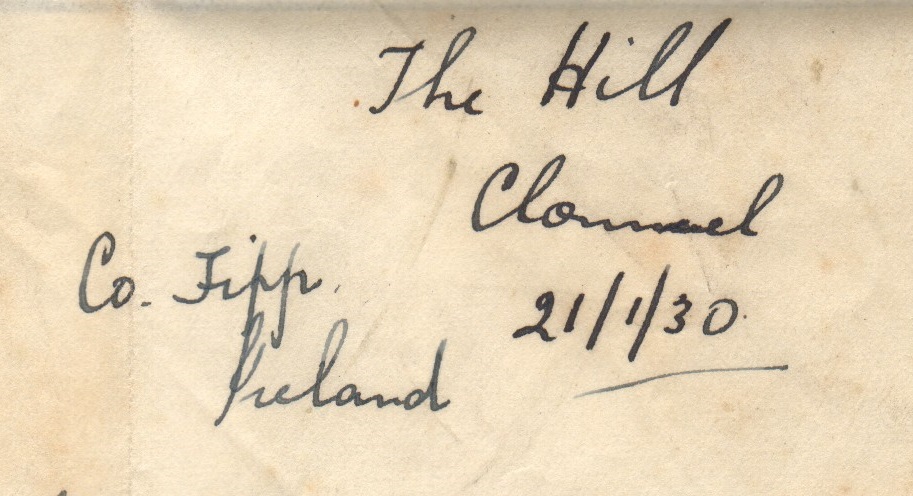 The Hill
Clonmel
21/1/30
Co. Tipp.
Ireland